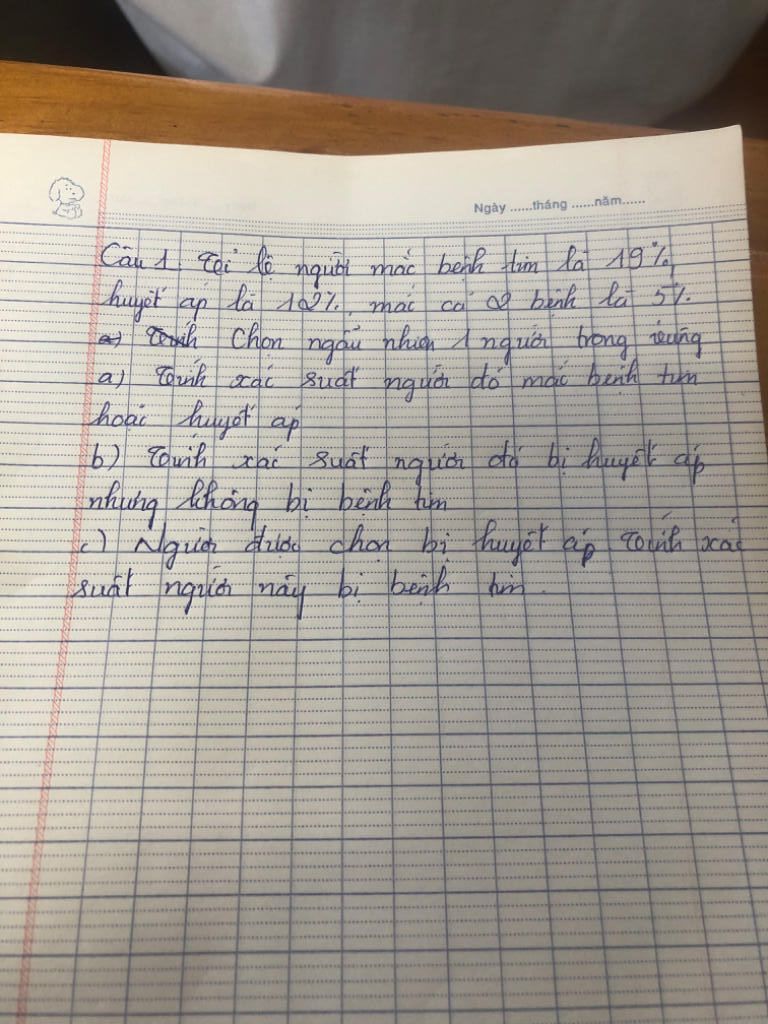 Ngày ......tháng ......năm......
Câu 1. Tỉ lệ người mắc bệnh tim là 19%,
huyết áp là 12%, mắc cả 2 bệnh là 5%.
a) Tính Chọn ngẫu nhiên 1 người trong vùng
a) Tính xác suất người đó mắc bệnh tim
hoặc huyết áp
b) Tính xác suất người đó bị huyết áp
nhưng không bị bệnh tim
c) Người được chọn bị huyết áp Tính xác
suất người này bị bệnh tim.